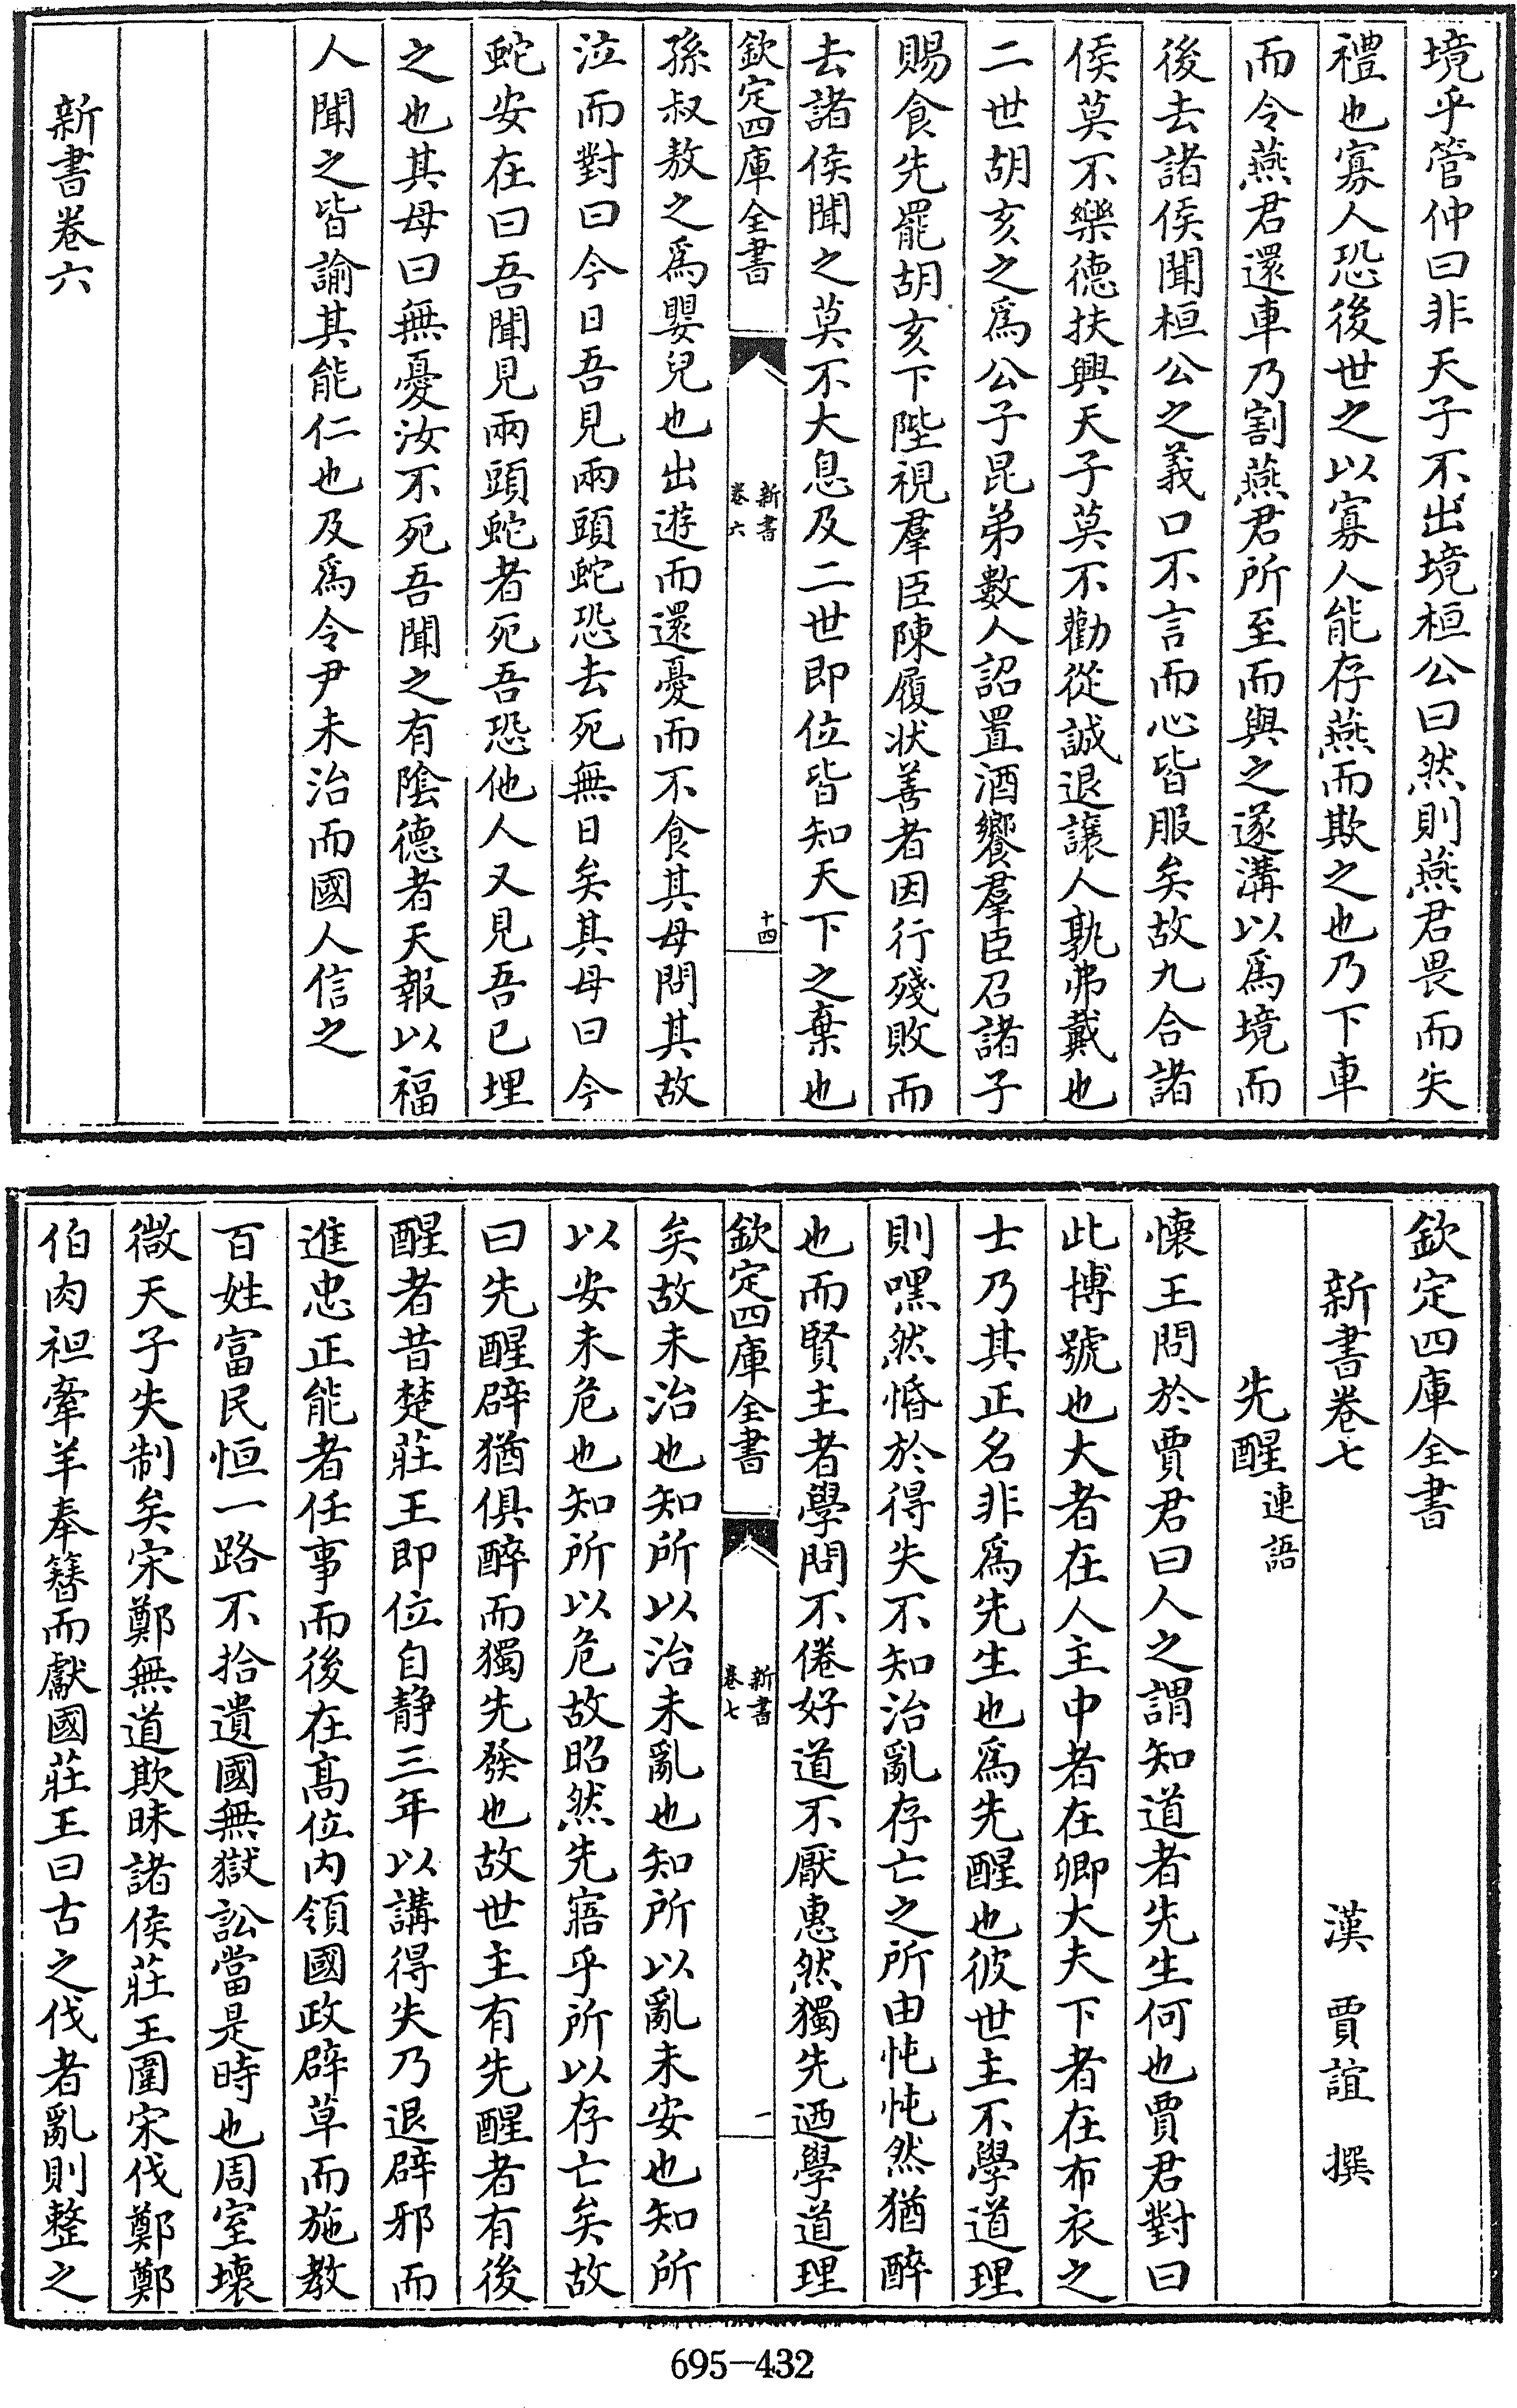 境乎管仲曰非天子不出境桓公曰然則燕君畏而失
禮也寡人恐後世之以寡人能存燕而欺之也乃下車
而令燕君還車乃割燕君所至而與之遂溝以為境而
後去諸侯聞桓公之義口不言而心皆服矣故九合諸
侯莫不樂德扶興天子莫不勸從誠退讓人孰弗戴也
二世胡亥之為公子昆弟數人詔置酒饗羣臣召諸子
賜食先罷胡亥下陛視羣臣陳履狀善者因行殘敗而
去諸侯聞之莫不大息及二世即位皆知天下之棄也
欽定四庫全書
新書
卷六
十四
孫叔敖之為嬰兒也出遊而還憂而不食其母問其故
泣而對曰今日吾見兩頭蛇恐去死無日矣其母曰今
蛇安在曰吾聞見兩頭蛇者死吾恐他人又見吾已埋
之也其母曰無憂汝不死吾聞之有陰德者天報以福
人聞之皆諭其能仁也及為令尹未治而國人信之
新書卷六
欽定四庫全書
新書卷七 漢 賈誼 撰
先醒連語
懷王問於賈君曰人之謂知道者先生何也賈君對曰
此博號也大者在人主中者在卿大夫下者在布衣之
士乃其正名非為先生也為先醒也彼世主不學道理
則嘿然惛於得失不知治亂存亡之所由忳忳然猶醉
也而賢主者學問不倦好道不厭惠然獨先迺學道理
欽定四庫全書
新書
卷七
一
矣故未治也知所以治未亂也知所以亂未安也知所
以安未危也知所以危故昭然先寤乎所以存亡矣故
曰先醒辟猶俱醉而獨先發也故世主有先醒者有後
醒者昔楚莊王即位自静三年以講得失乃退辟邪而
進忠正能者任事而後在高位内領國政辟草而施教
百姓富民恒一路不拾遺國無獄訟當是時也周室壞
微天子失制矣宋鄭無道欺昧諸侯莊王圍宋伐鄭鄭
伯肉袒牽羊奉簪而獻國莊王曰古之伐者亂則整之
695-432